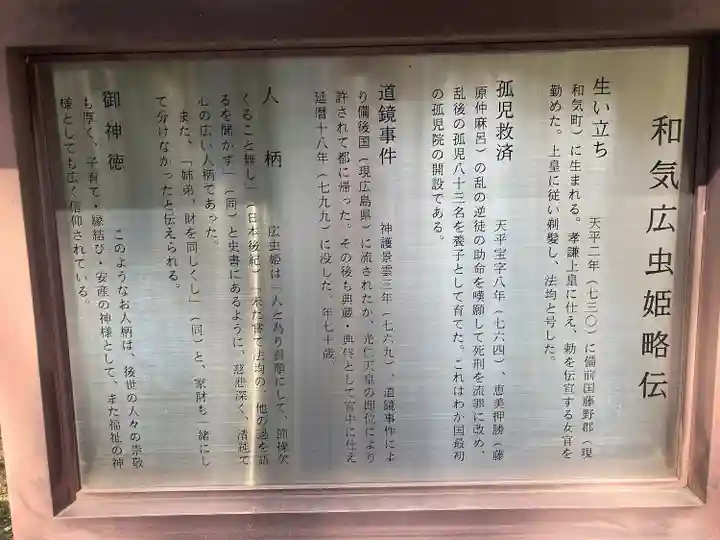 和気広虫姫略伝
生い立ち　天平二年（七三〇）に備前国藤野郡（現
和気町）に生まれる。孝謙上皇に仕え、勅を伝宣する女官を
勤めた。上皇に従い剃髪し、法均と号した。
孤児救済　天平宝字八年（七六四）、恵美押勝（藤
原仲麻呂）の乱の逆徒の助命を嘆願して死刑を流罪に改め、
乱後の孤児八十三名を養子として育てた。これはわが国最初
の孤児院の開設である。
道鏡事件　神護景雲三年（七六九）、道鏡事件によ
り備後国（現広島県）に流されたが、光仁天皇の即位により
許されて都に帰った。その後も典蔵・典侍として宮中に仕え
延暦十八年（七九九）に没した。年七十歳
人柄　広虫姫は「人と為り貞順にして、節操欠
くること無し」（日本後紀）「未だ嘗て法均の、他の過を語
るを聞かず」（同）と史書にあるように、慈悲深く、清純で
心の広い人柄であった。
また、「姉弟、財を同じくし」（同）と、家財も一緒にし
て分けなかったと伝えられる。
御神徳　このようなお人柄は、後世の人々の崇敬
も厚く、子育て・縁結び・安産の神様として、また福祉の神
様としても広く信仰されている。